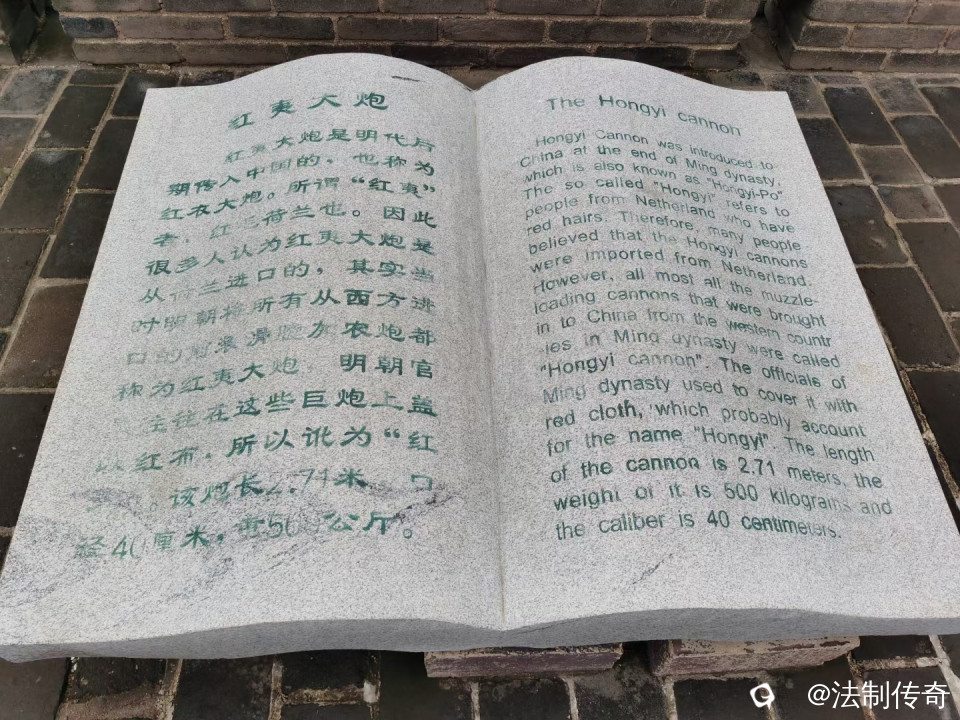 红夷大炮
红夷大炮是明代后
期传入中国的，也称为
红衣大炮。所谓“红夷”
者，红毛荷兰也。因此
很多人认为红夷大炮是
从荷兰进口的，其实当
时明朝将所有从西方进
口的前装滑膛加农炮都
称为红夷大炮，明朝官
往往在这些巨炮上盖
以红布，所以讹为“红
该炮长2.71米 口
径40厘米，重500公斤。
The Hongyi cannon
Hongyi Cannon was introduced to
China at the end of Ming dynasty,
which is also known as "Hongyi-Po".
The so called "Hongyi" refers to
people from Netherland who have
red hairs. Therefore, many people
believed that the Hongyi cannons
were imported from Netherland.
However, all most all the muzzle-
loading cannons that were brought
in to China from the western countr
ies in Ming dynasty were called
"Hongyi cannon". The officials of
Ming dynasty used to cover it with
red cloth, which probably account
for the name "Hongyi". The length
of the cannon is 2.71 meters, the
weight of it is 500 kilograms and
the caliber is 40 centimeters.
@法制传奇